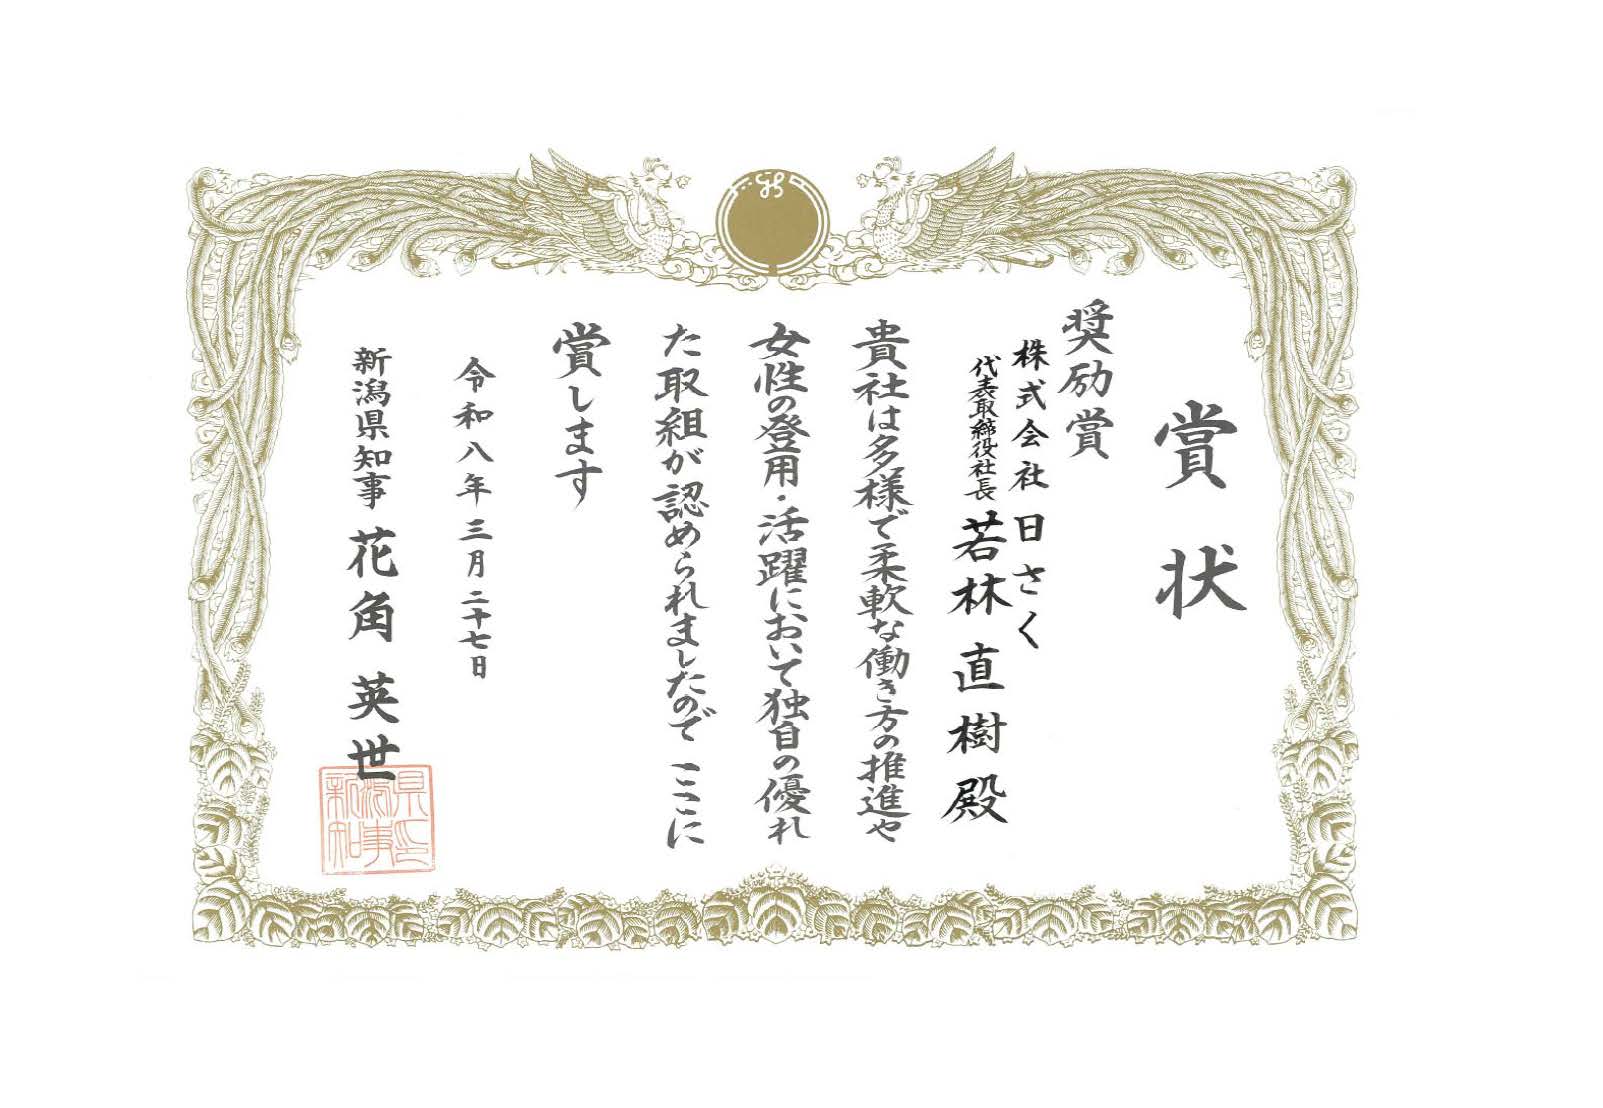 賞状
奨励賞
株式会社 日さく
代表取締役社長 若林 直樹 殿
貴社は多様で柔軟な働き方の推進や
女性の登用・活躍において独自の優れ
た取組が認められましたので ここに
賞します
令和八年三月二十七日
新潟県知事 花角 英世
新潟県知事印